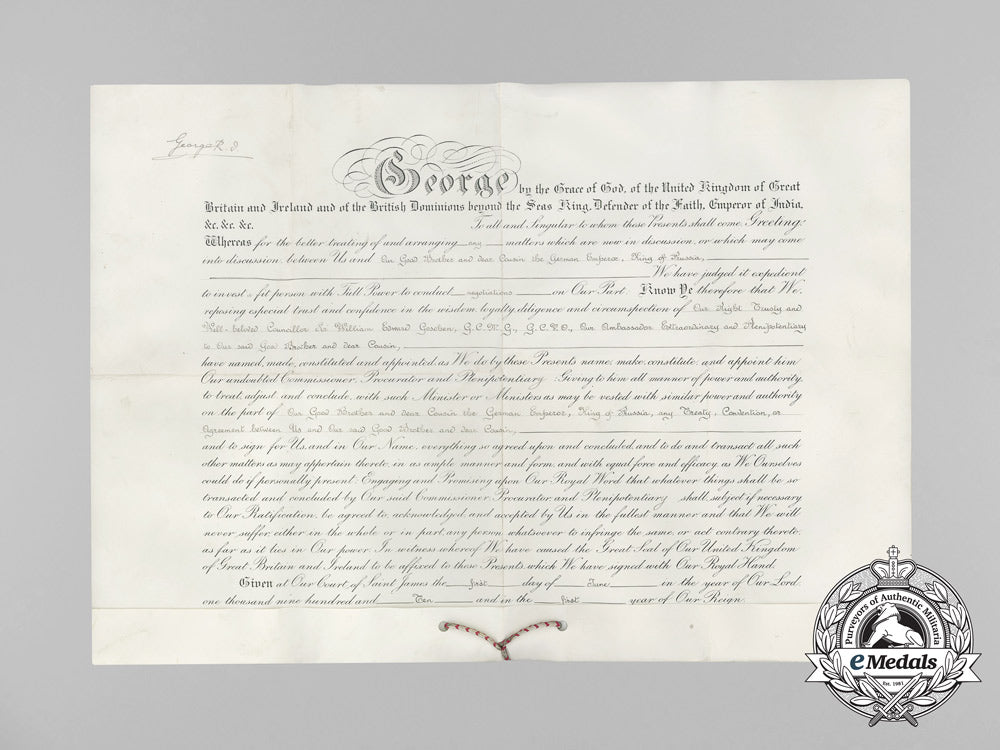 George R. I.
George by the Grace of God, of the United Kingdom of Great
Britain and Ireland and of the British Dominions beyond the Seas King, Defender of the Faith, Emperor of India,
&c. &c. &c. To all and Singular to whom these Presents shall come, Greeting:
Whereas for the better treating of and arranging any matters which are now in discussion, or which may come
into discussion, between Us and Our Good Brother and dear Cousin the German Emperor, King of Prussia,
We have judged it expedient
to invest a fit person with Full Power to conduct negotiations on Our Part. Know Ye therefore that We,
reposing especial trust and confidence in the wisdom, loyalty, diligence and circumspection of Our Right Trusty and
Well-beloved Councillor Sir William Edward Goschen, G.C.M.G., G.C.V.O., Our Ambassador Extraordinary and Plenipotentiary
to Our said Good Brother and dear Cousin,
have named, made, constituted and appointed, as We do by these Presents name, make, constitute, and appoint him
Our undoubted Commissioner, Procurator and Plenipotentiary: Giving to him all manner of power and authority
to treat, adjust and conclude, with such Minister or Ministers as may be vested with similar power and authority
on the part of Our Good Brother and dear Cousin the German Emperor, King of Prussia, any Treaty, Convention, or
Agreement between Us and Our said Good Brother and dear Cousin,
and to sign for Us, and in Our Name, everything so agreed upon and concluded, and to do and transact all such
other matters as may appertain thereto, in as ample manner and form, and with equal force and efficacy, as We Ourselves
could do if personally present: Engaging and Promising upon Our Royal Word that whatever things shall be so
transacted and concluded by Our said Commissioner, Procurator, and Plenipotentiary shall, subject if necessary
to Our Ratification, be agreed to, acknowledged, and accepted by Us in the fullest manner, and that We will
never suffer, either in the whole or in part, any person whatsoever to infringe the same, or act contrary thereto,
as far as it lies in Our power. In witness whereof We have caused the Great Seal of Our United Kingdom
of Great Britain and Ireland to be affixed to these Presents, which We have signed with Our Royal Hand.
Given at Our Court of Saint James, the first day of June in the year of Our Lord,
one thousand nine hundred and Ten and in the first year of Our Reign.
Purveyors of Authentic Militaria
eMedals
Est. 1981